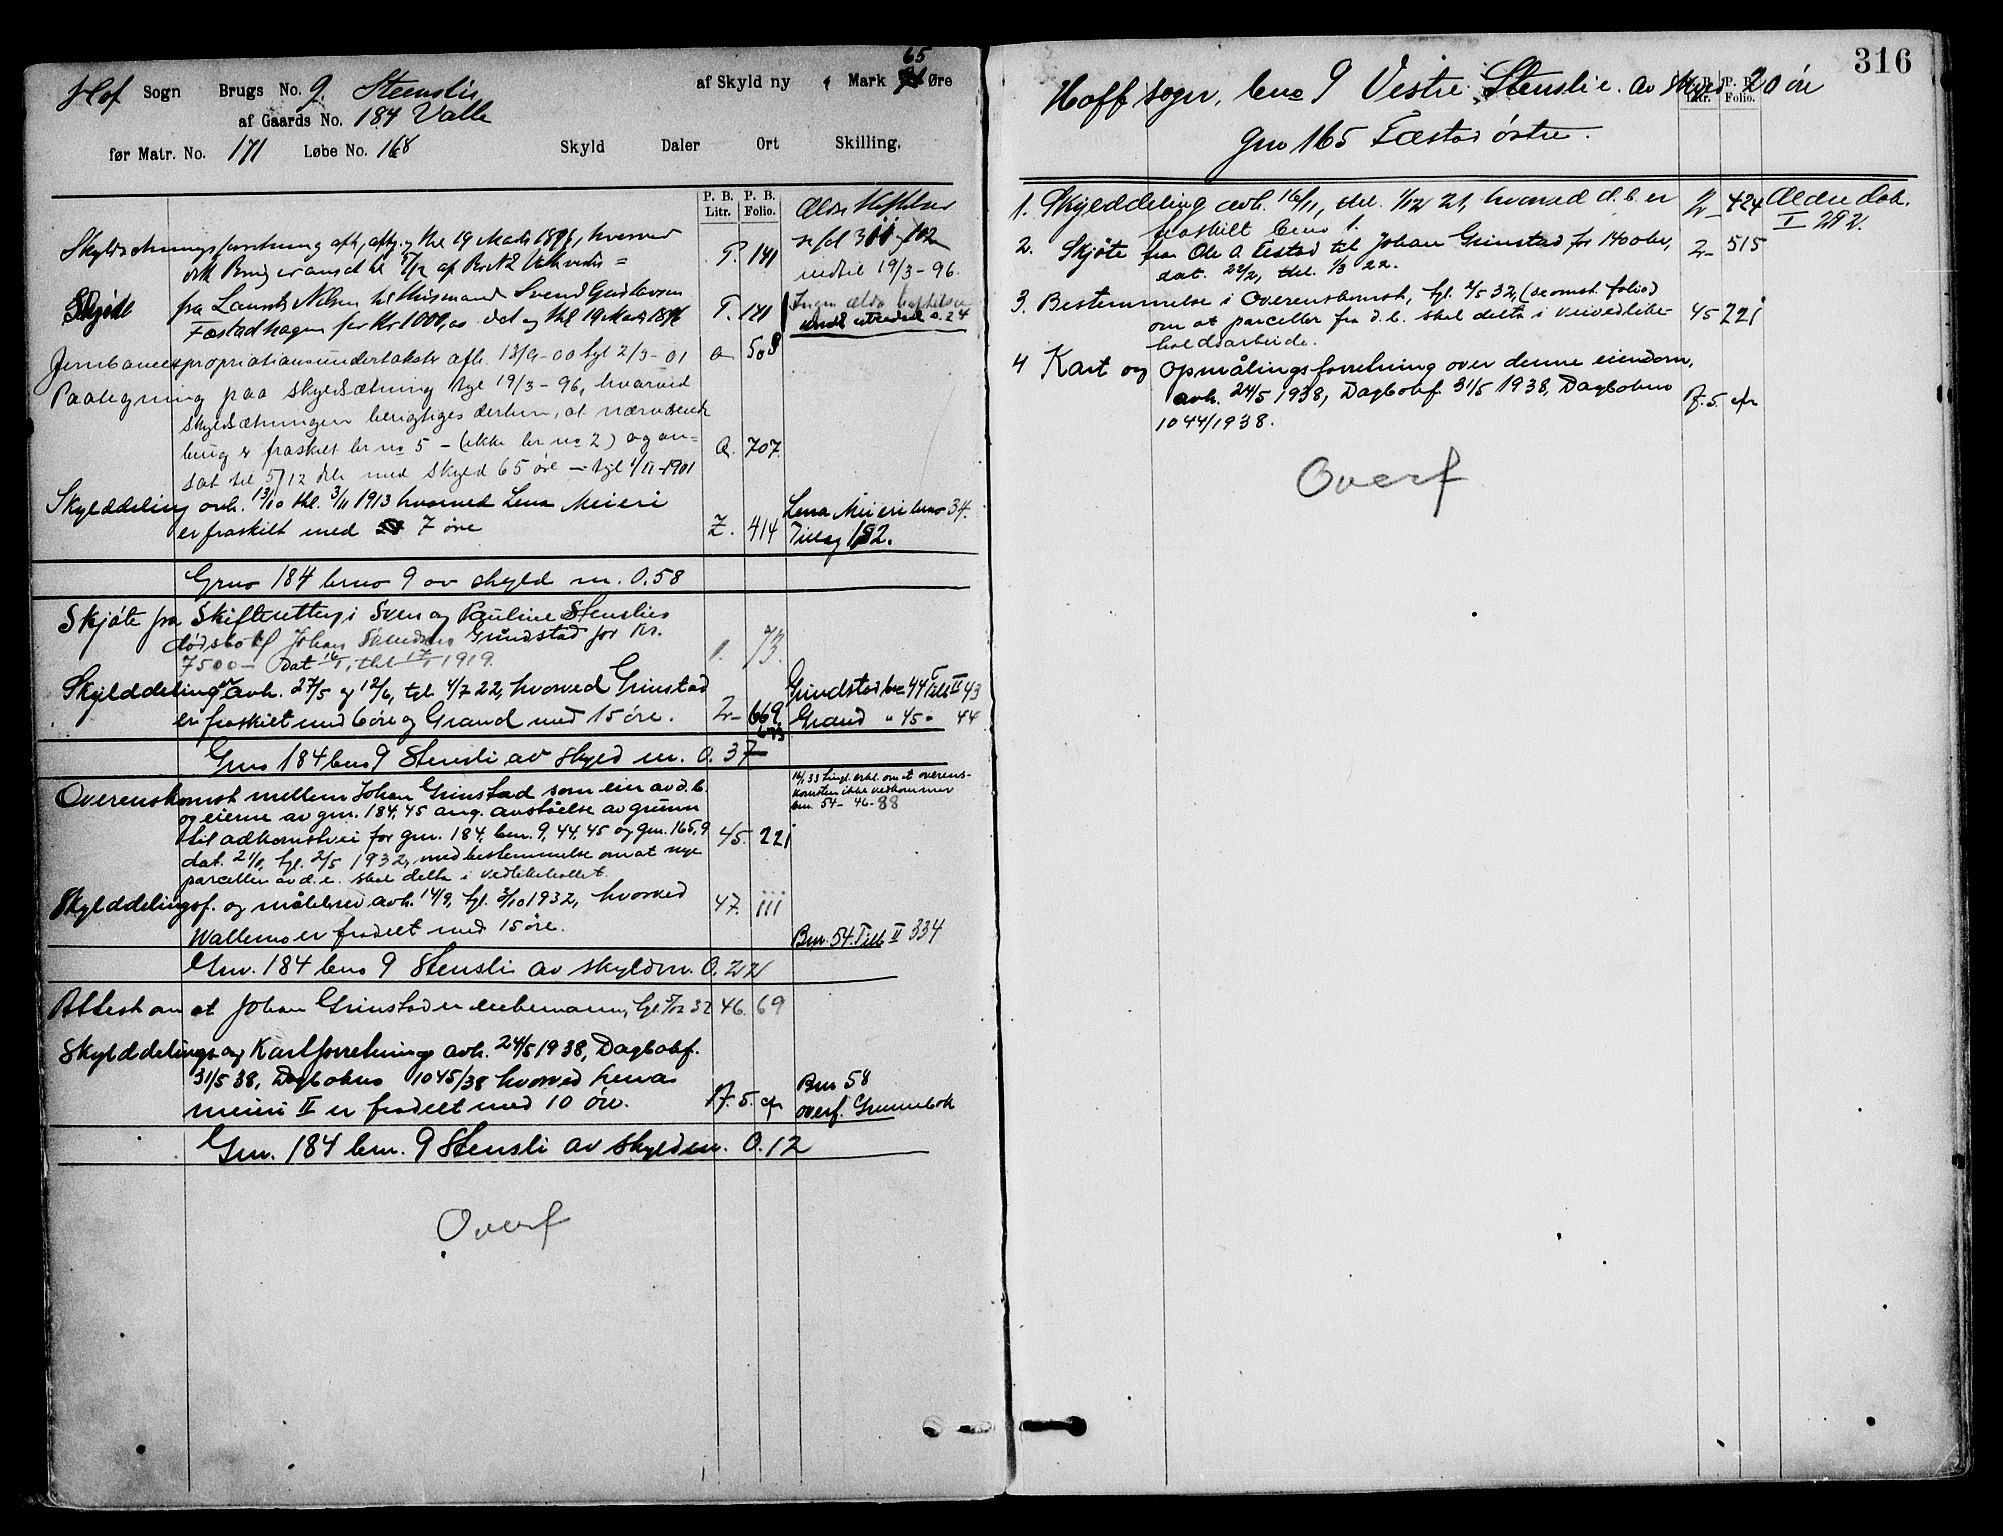 Hof Sogn Brugs No. 9 Steenslie af Skyld ny Mark 65 Øre
af Gaards No. 184 Valle
før Matr. No. 171 Løbe No. 168 Skyld Daler Ort Skilling.
P. B. Litr. P. B. Folio.
Ældre Heftelser
se fol 102
indtil 19/3-96.
Skyldsætningsforretning afh., thl 19 Marts 1896, hvorved
dette Brug er ansat til 5/12 af Br. No 2 P. 141
Skjøde fra Laurits Nilsen til Husmand Svend Gustavsen
Fæstadhagen for Kr 1000,00 Dat og thl 19 Marts 1896 P. 141
Ingen ældre heftelser
Jernbaneexpropriationsundertakst afh. 13/9-00 tgl 2/3-01 Q 508
Paategning paa skyldsætning tgl 19/3-96, hvorved
skyldsætningen berigtiges derhen, at nærværende
brug er fraskilt br no 5 - (ikke br no 2) og an-
sat til 5/12 dele med skyld 65 øre - tgl 1/11-1901 Q. 707.
Skylddeling avh. 13/10 thl. 3/11 1913 hvorved Lena Meieri
er fraskilt med 7 øre Z. 414
Lena Meieri brno 34.
Tillæg 152.
Grno 184 brno 9 av skyld m. 0.58
Skjøte fra Skifteretten i Sven og Pauline Stenslies
dødsbo til Johan Svendsen Grindstad for Kr.
7500- Dat 16/1, thl 17/1 1919. 1. 73.
Skylddeling avh. 27/5 og 12/6, tgl. 4/7 22, hvorved Grinstad
er fraskilt med 6 øre og Grand med 15 øre. 2- 669
Grindstad bno 44 Till II 43
Grand " 45 " 44
Gno 184 bno 9 Stensli av skyld m. 0.37
Overenskomst mellem Johan Grinstad som eier av d. b.
og eierne av gnr. 184, 45 ang. avståelse av grunn
til adkomstvei for gnr. 184, bnr. 9, 44, 45 og gnr. 165, 9
dat. tgl. 2/5 1932, med bestemmelse om at nye
parceller av d. e. skal delta i vedlikeholdet. 45. 221
tingl. erkl. om at overens-
komsten ikke vedkommer
bnr. 54 - 46 - 88
Skylddelingsf. og målebrev avh. 14/9, tgl. 3/10 1932, hvorved
Wallemo er fradelt med 15 øre. 47. 111
Bnr. 54. Till II 334
Gnr. 184 bno 9 Stensli av skyld m. 0.22
Attest om at Johan Grinstad er enkemann, tgl. 5/12 32 46. 69
Skylddelings og Kartforretning avh. 24/5 1938, Dagbokf.
31/5 38, Dagbokno 1045/38 hvorved Lenas
meieri II er fradelt med 10 øre. A. 5. cfr
Bnr 58
overf. Grunnbok
Gnr. 184 bnr. 9 Stensli av skyld m. 0.12
Overf
316
P. B. Litr. P. B. Folio.
Hoff sogn, bno 9 Vestre Stenslie. av skyld 20 øre
gno 165 Fæstad østre.
1. Skylddeling avh. 16/11, thl. 1/12 21, hvorved d. b. er 2- 424 Ældre dok.
fraskilt bno 1. I 292.
2. Skjøte fra Ole A. Festad til Johan Grinstad for 1400 kr, 2- 515
dat. 22/2, thl. 1/3 22.
3. Bestemmelse i Overenskomst, tgl. 2/5 32, (se omst. folio)
om at parceller fra d. b. skal delta i veivedlike- 45 221
holdsarbeide.
4 Kart og opmålingsforretning over denne eiendom,
avh. 24/5 1938, Dagbokf. 31/5 1938, Dagbokno A. 5. cfr
1044/1938.
Overf